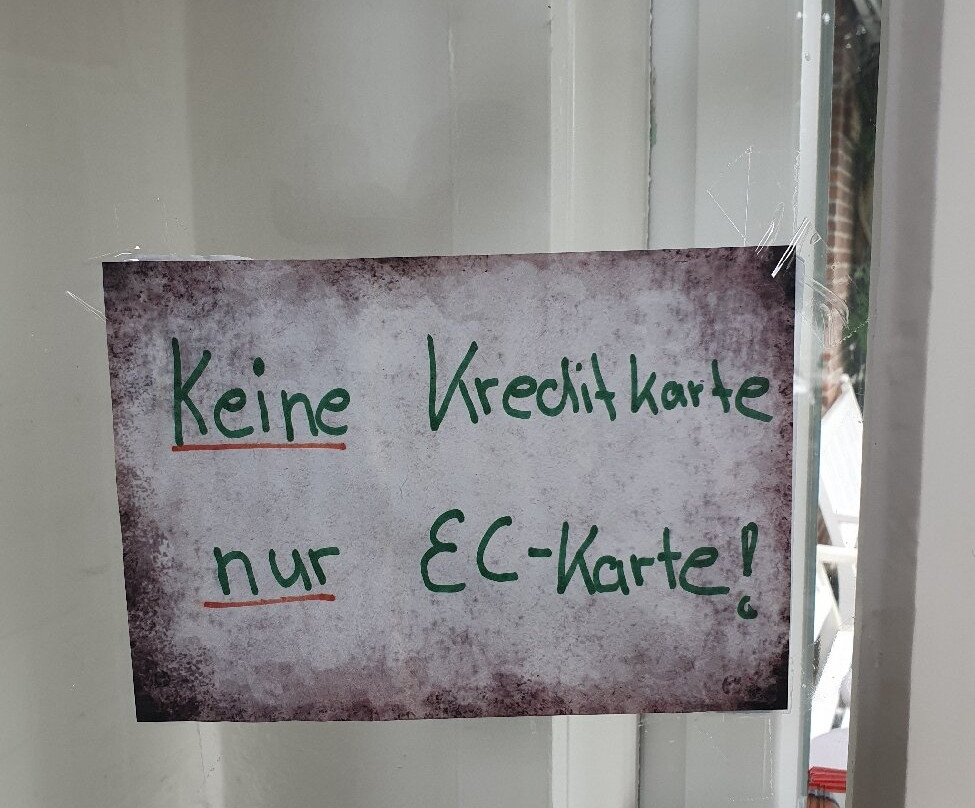 Keine Kreditkarte
nur EC-Karte!